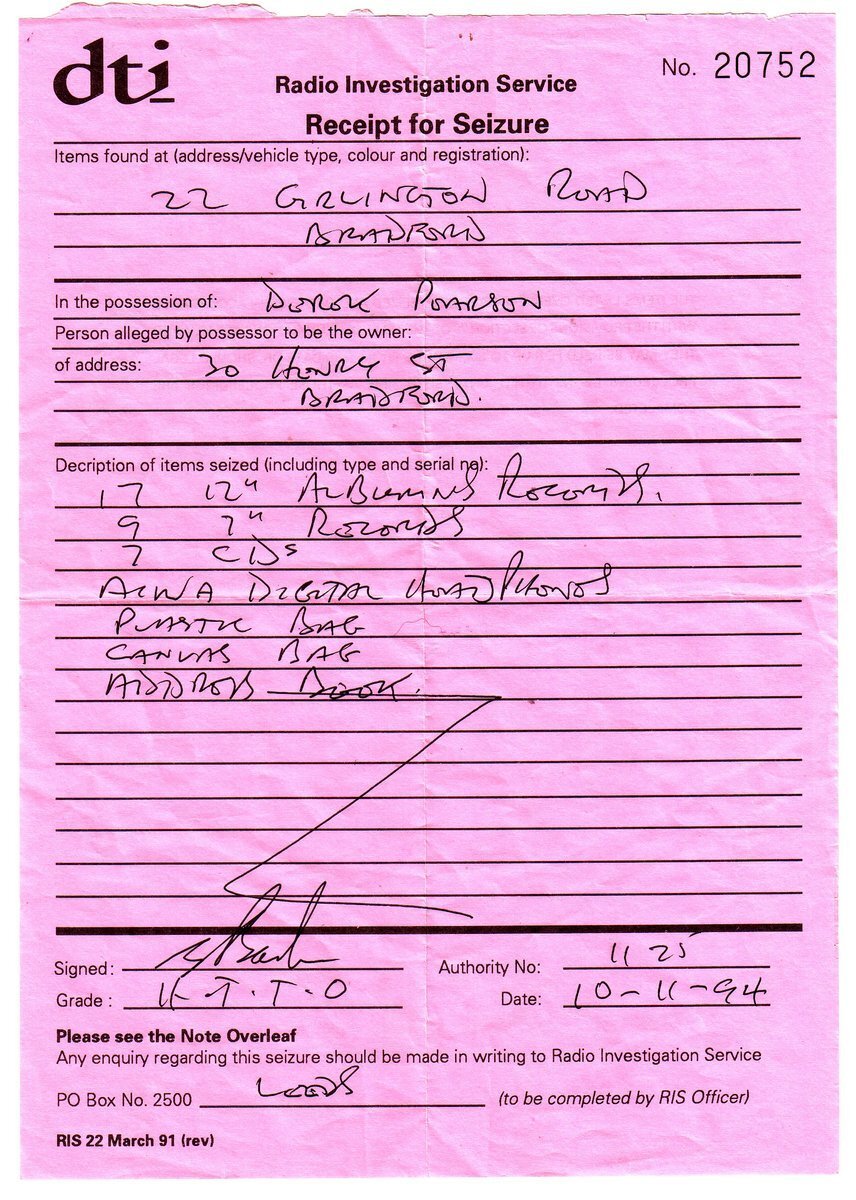 dti
No. 20752
Radio Investigation Service
Receipt for Seizure
Items found at (address/vehicle type, colour and registration):
22 GIRLINGTON ROAD
BRADFORD
In the possession of: DEREK PEARSON
Person alleged by possessor to be the owner:
of address: 30 HENRY ST
BRADFORD.
Decription of items seized (including type and serial no):
17 12" ALBUMNS RECORDS.
9 7" RECORDS
7 CDs
AIWA DIGITAL HEADPHONES
PLASTIC BAG
CANVAS BAG
ADDRESS BOOK.
Signed:
Authority No: 1125
Grade : H-T.T.O
Date: 10-11-94
Please see the Note Overleaf
Any enquiry regarding this seizure should be made in writing to Radio Investigation Service
PO Box No. 2500 LEEDS (to be completed by RIS Officer)
RIS 22 March 91 (rev)